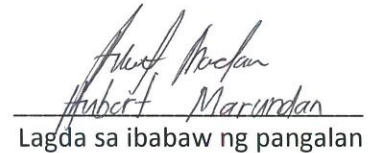 Hubert Marundan
Lagda sa ibabaw ng pangalan